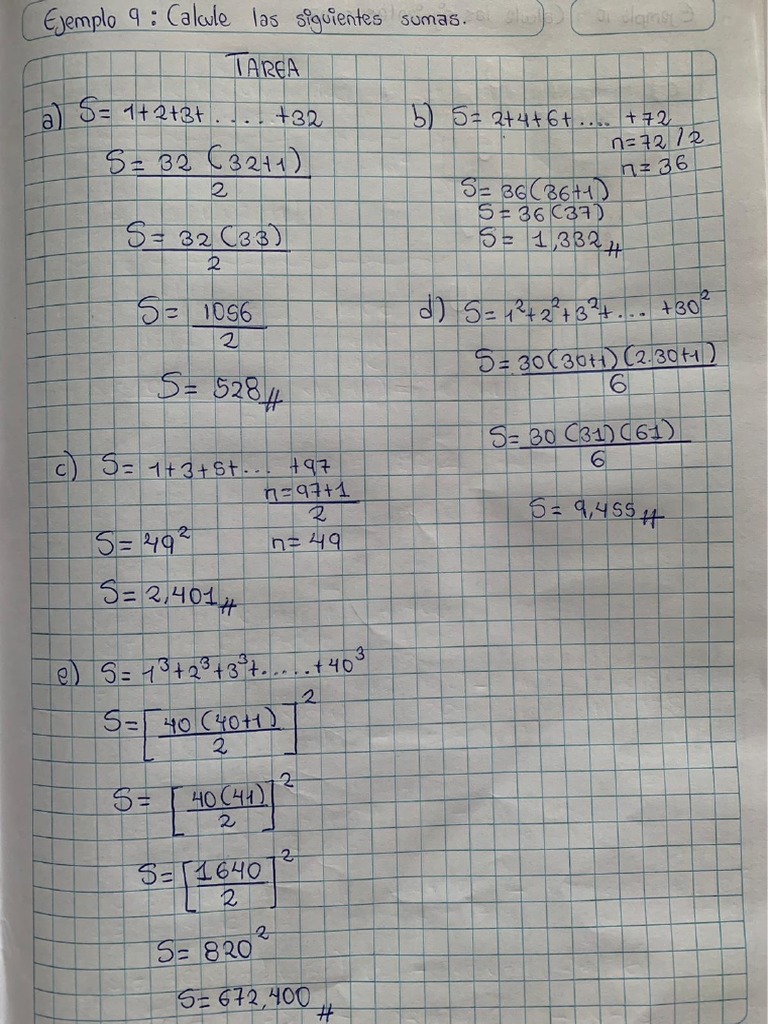 Ejemplo 9: Calcule las siguientes sumas.
TAREA
a) S= 1+2+3+ ..... +32
S= 32 (32+1)
2
S= 32 (33)
2
S= 1056
2
S= 528
b) S= 2+4+6+ .... +72
n=72 /2
n= 36
S= 36(36+1)
S= 36(37)
S= 1,332
c) S= 1+3+5+ ... +97
n=97+1
2
n= 49
S= 49²
S= 2,401
d) S= 1²+2²+3²+ ... +30²
S= 30(30+1)(2.30+1)
6
S= 30 (31)(61)
6
S= 9,455
e) S= 1³+2³+3³+.....+40³
S=[40(40+1)]²
2
S= [40(41)]²
2
S= [1640]²
2
S= 820²
S= 672,400